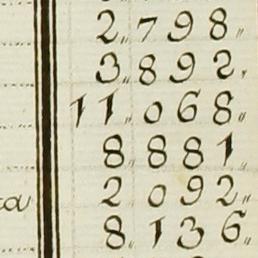 2„798„
3„892„
11„068„
8„881„
2„092„
8„136„